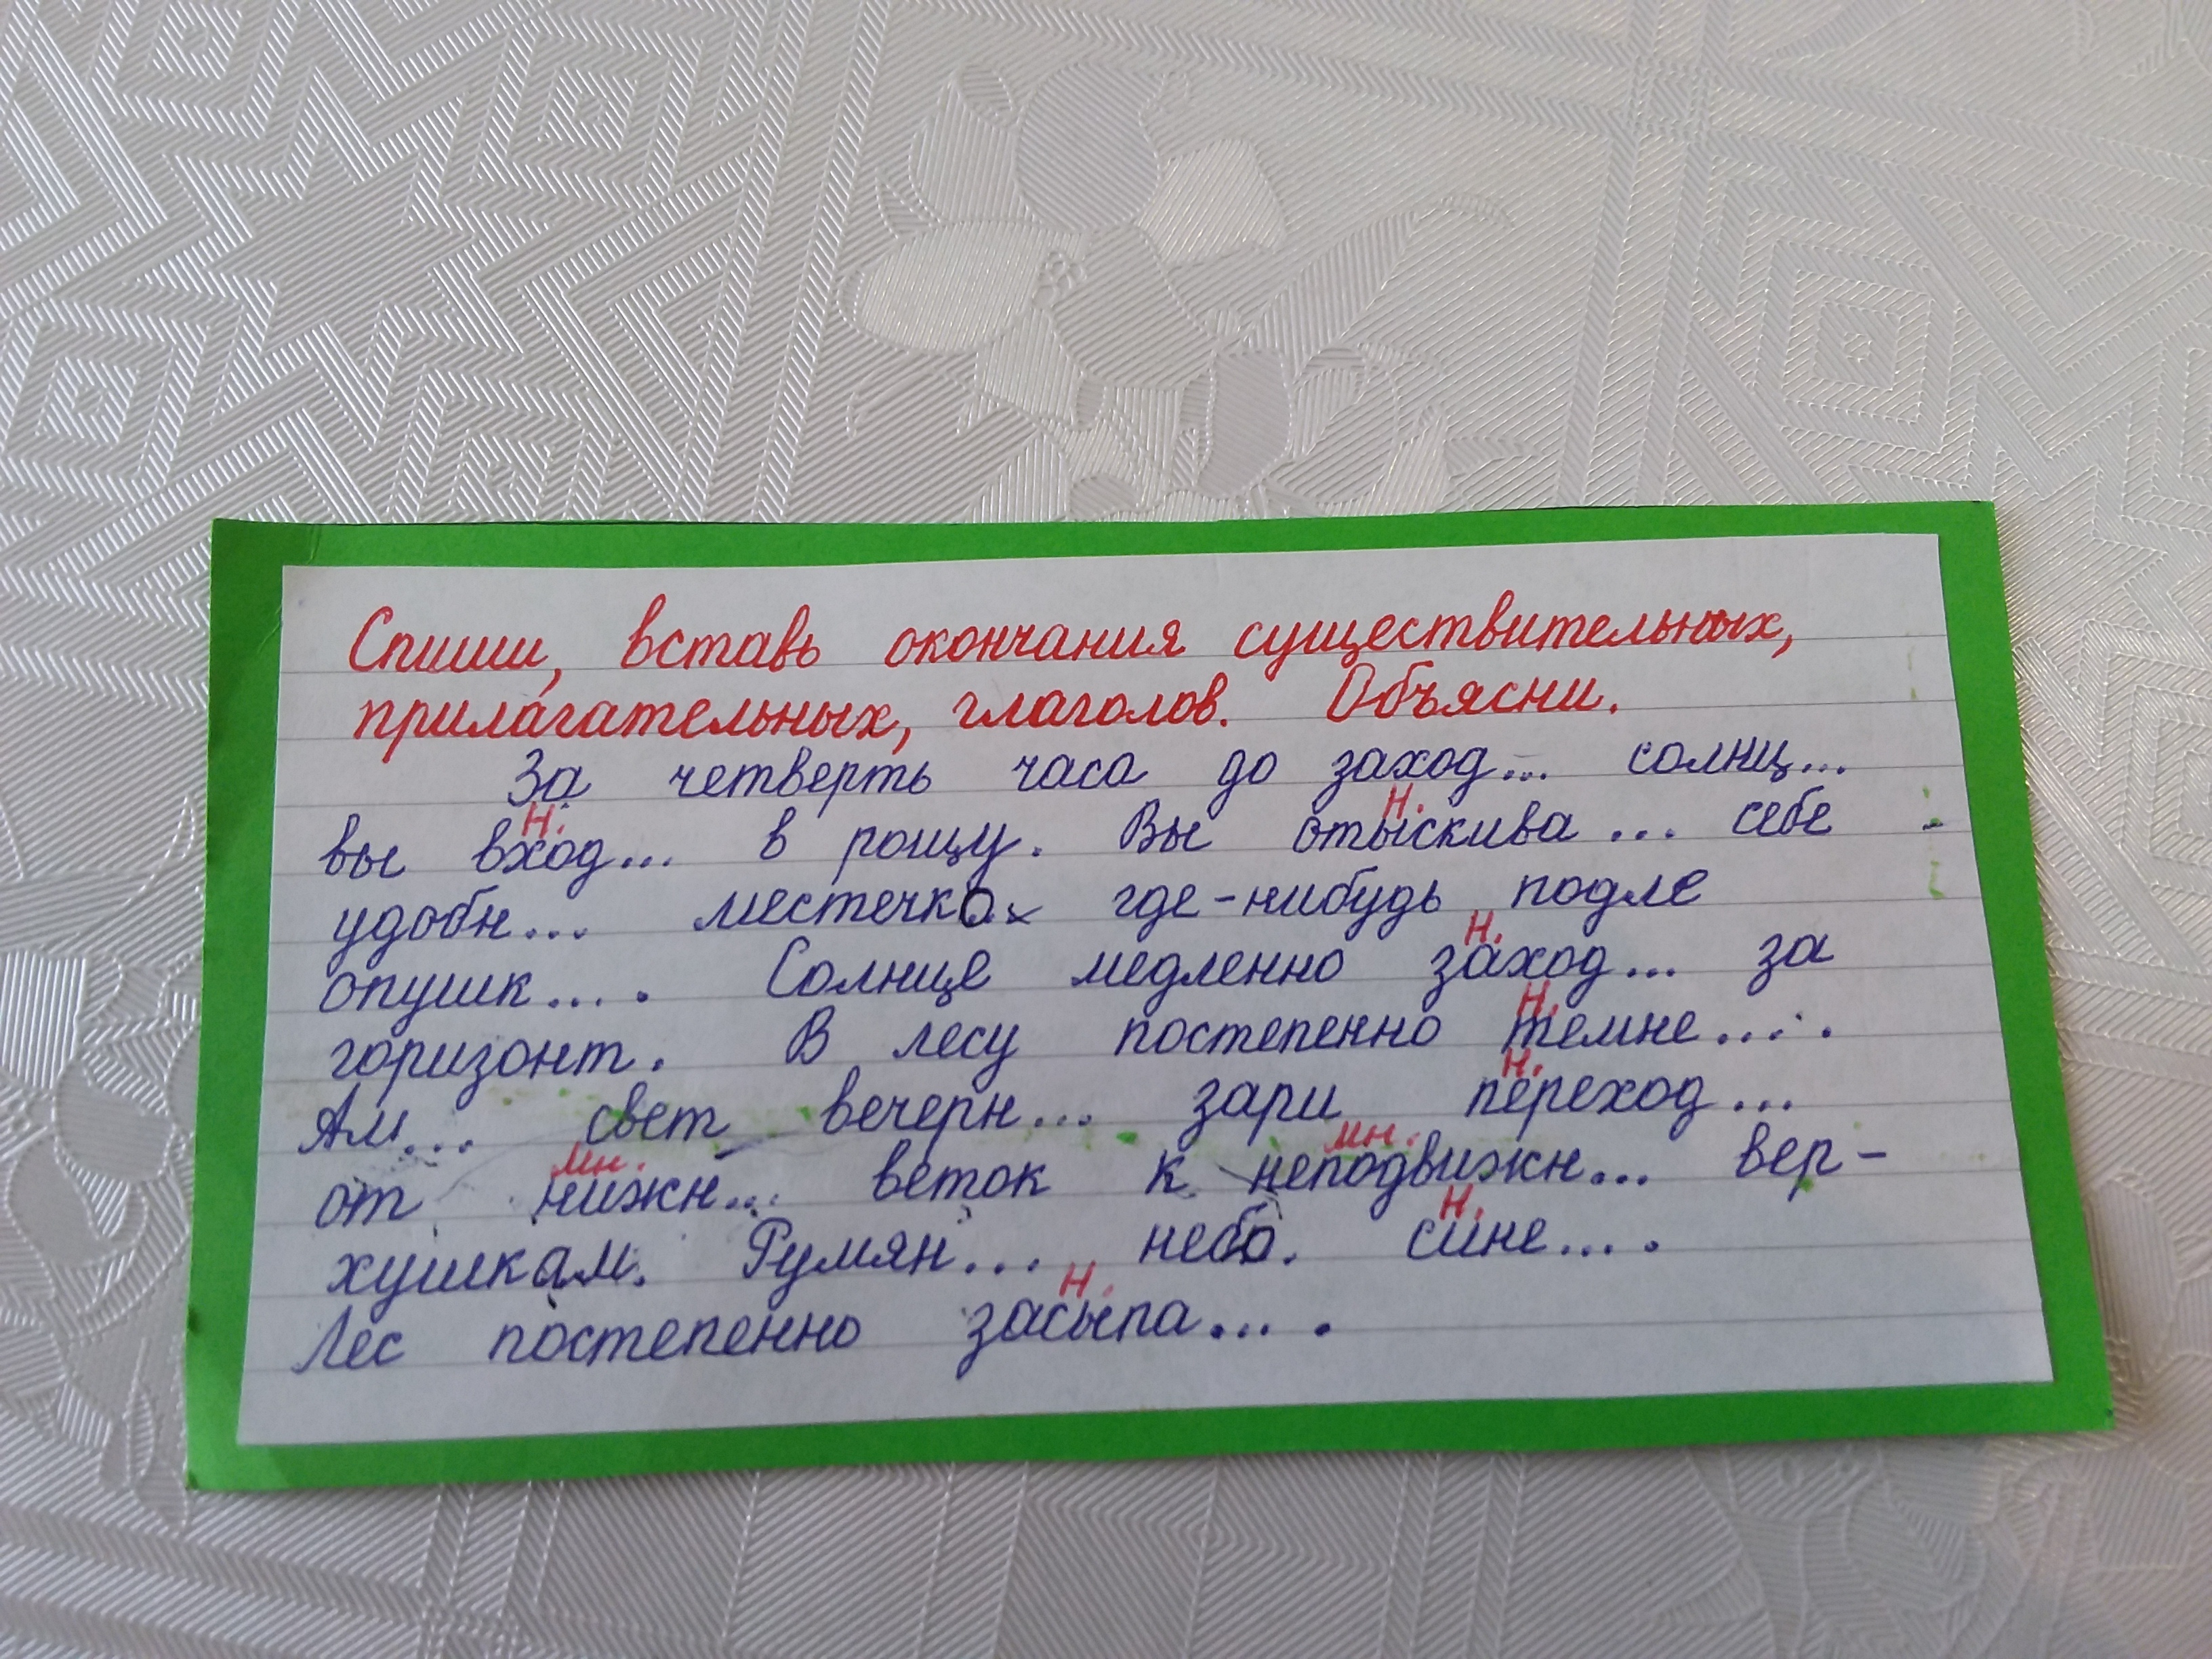 Спиши, вставь окончания существительных,
прилагательных, глаголов. Объясни.
За четверть часа до заход... солнц...
н. н.
вы вход... в рощу. Вы отыскива... себе
удобн... местечко где-нибудь подле
н.
опушк.... Солнце медленно заход... за
н.
горизонт. В лесу постепенно темне....
н.
Ал... свет вечерн... зари переход...
мн. мн.
от нижн... веток к неподвижн... вер-
н.
хушкам. Румян... небо. сине....
н.
Лес постепенно засыпа....